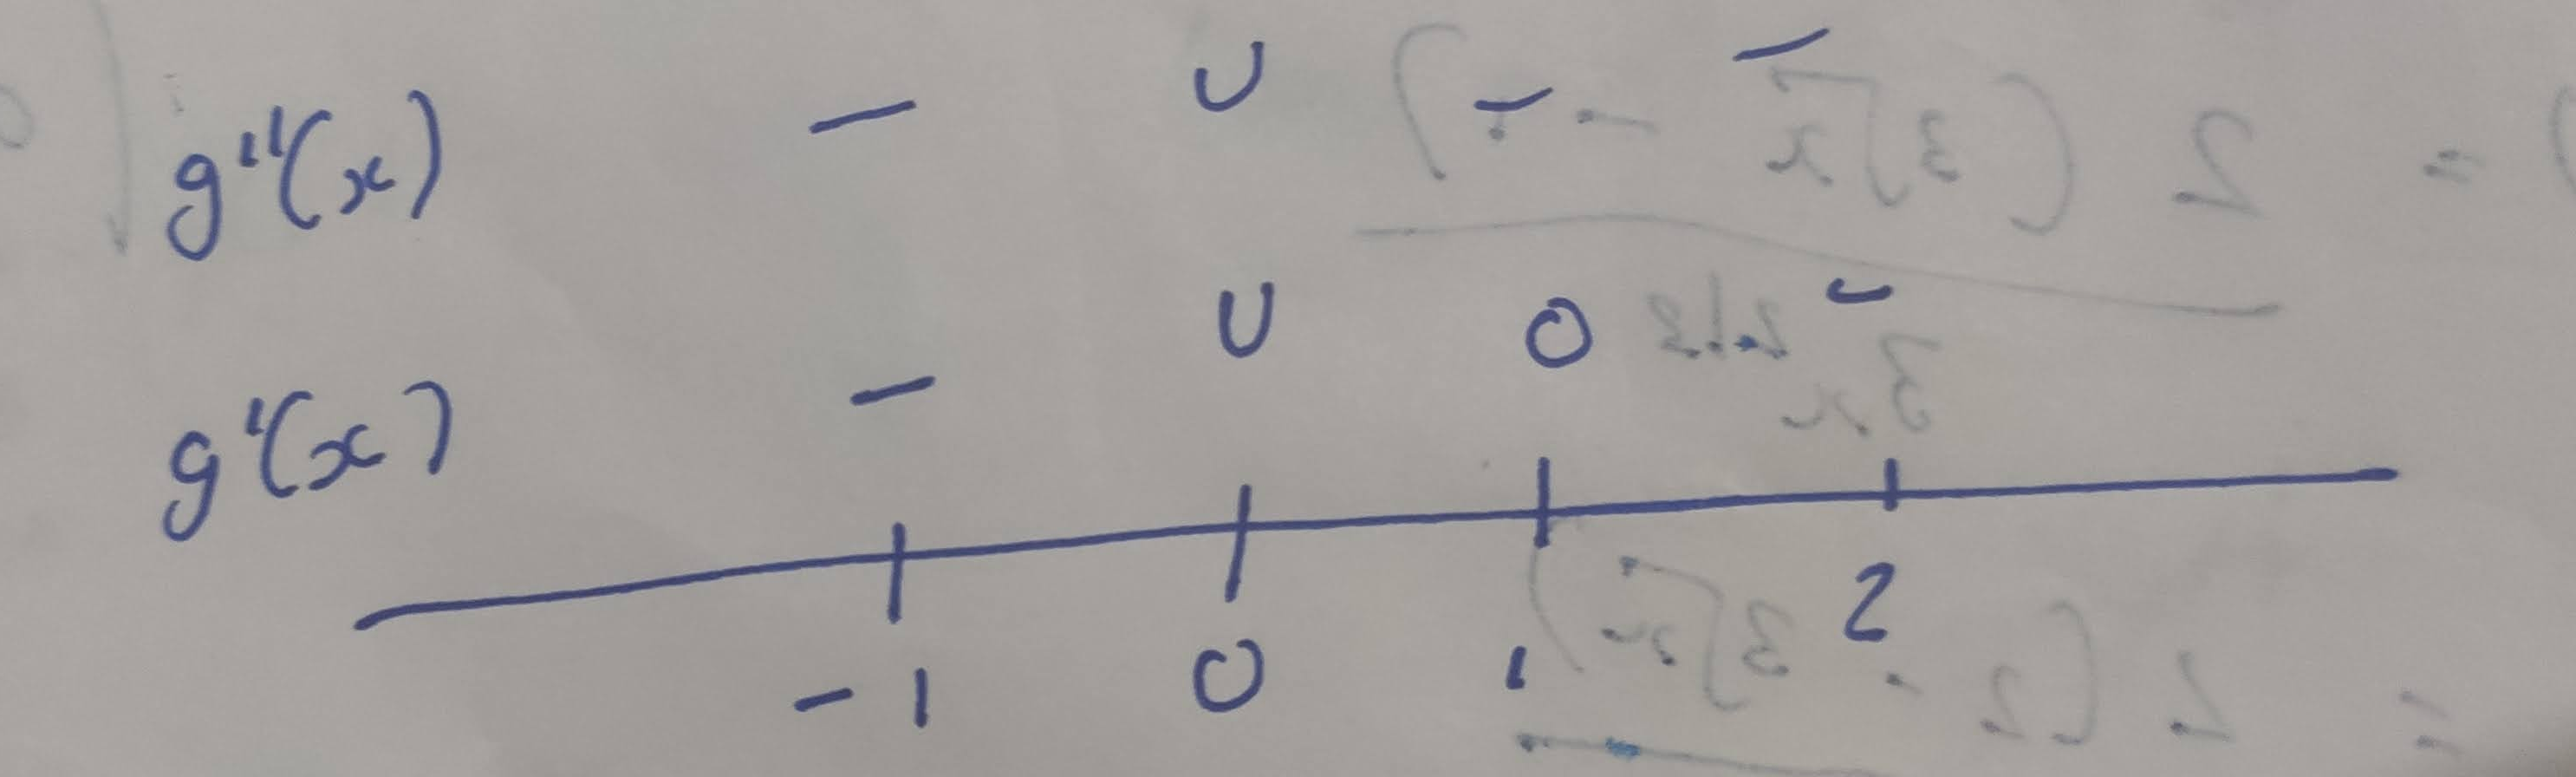 g''(x) − U − −
g'(x) − U 0 −
−1 0 1 2